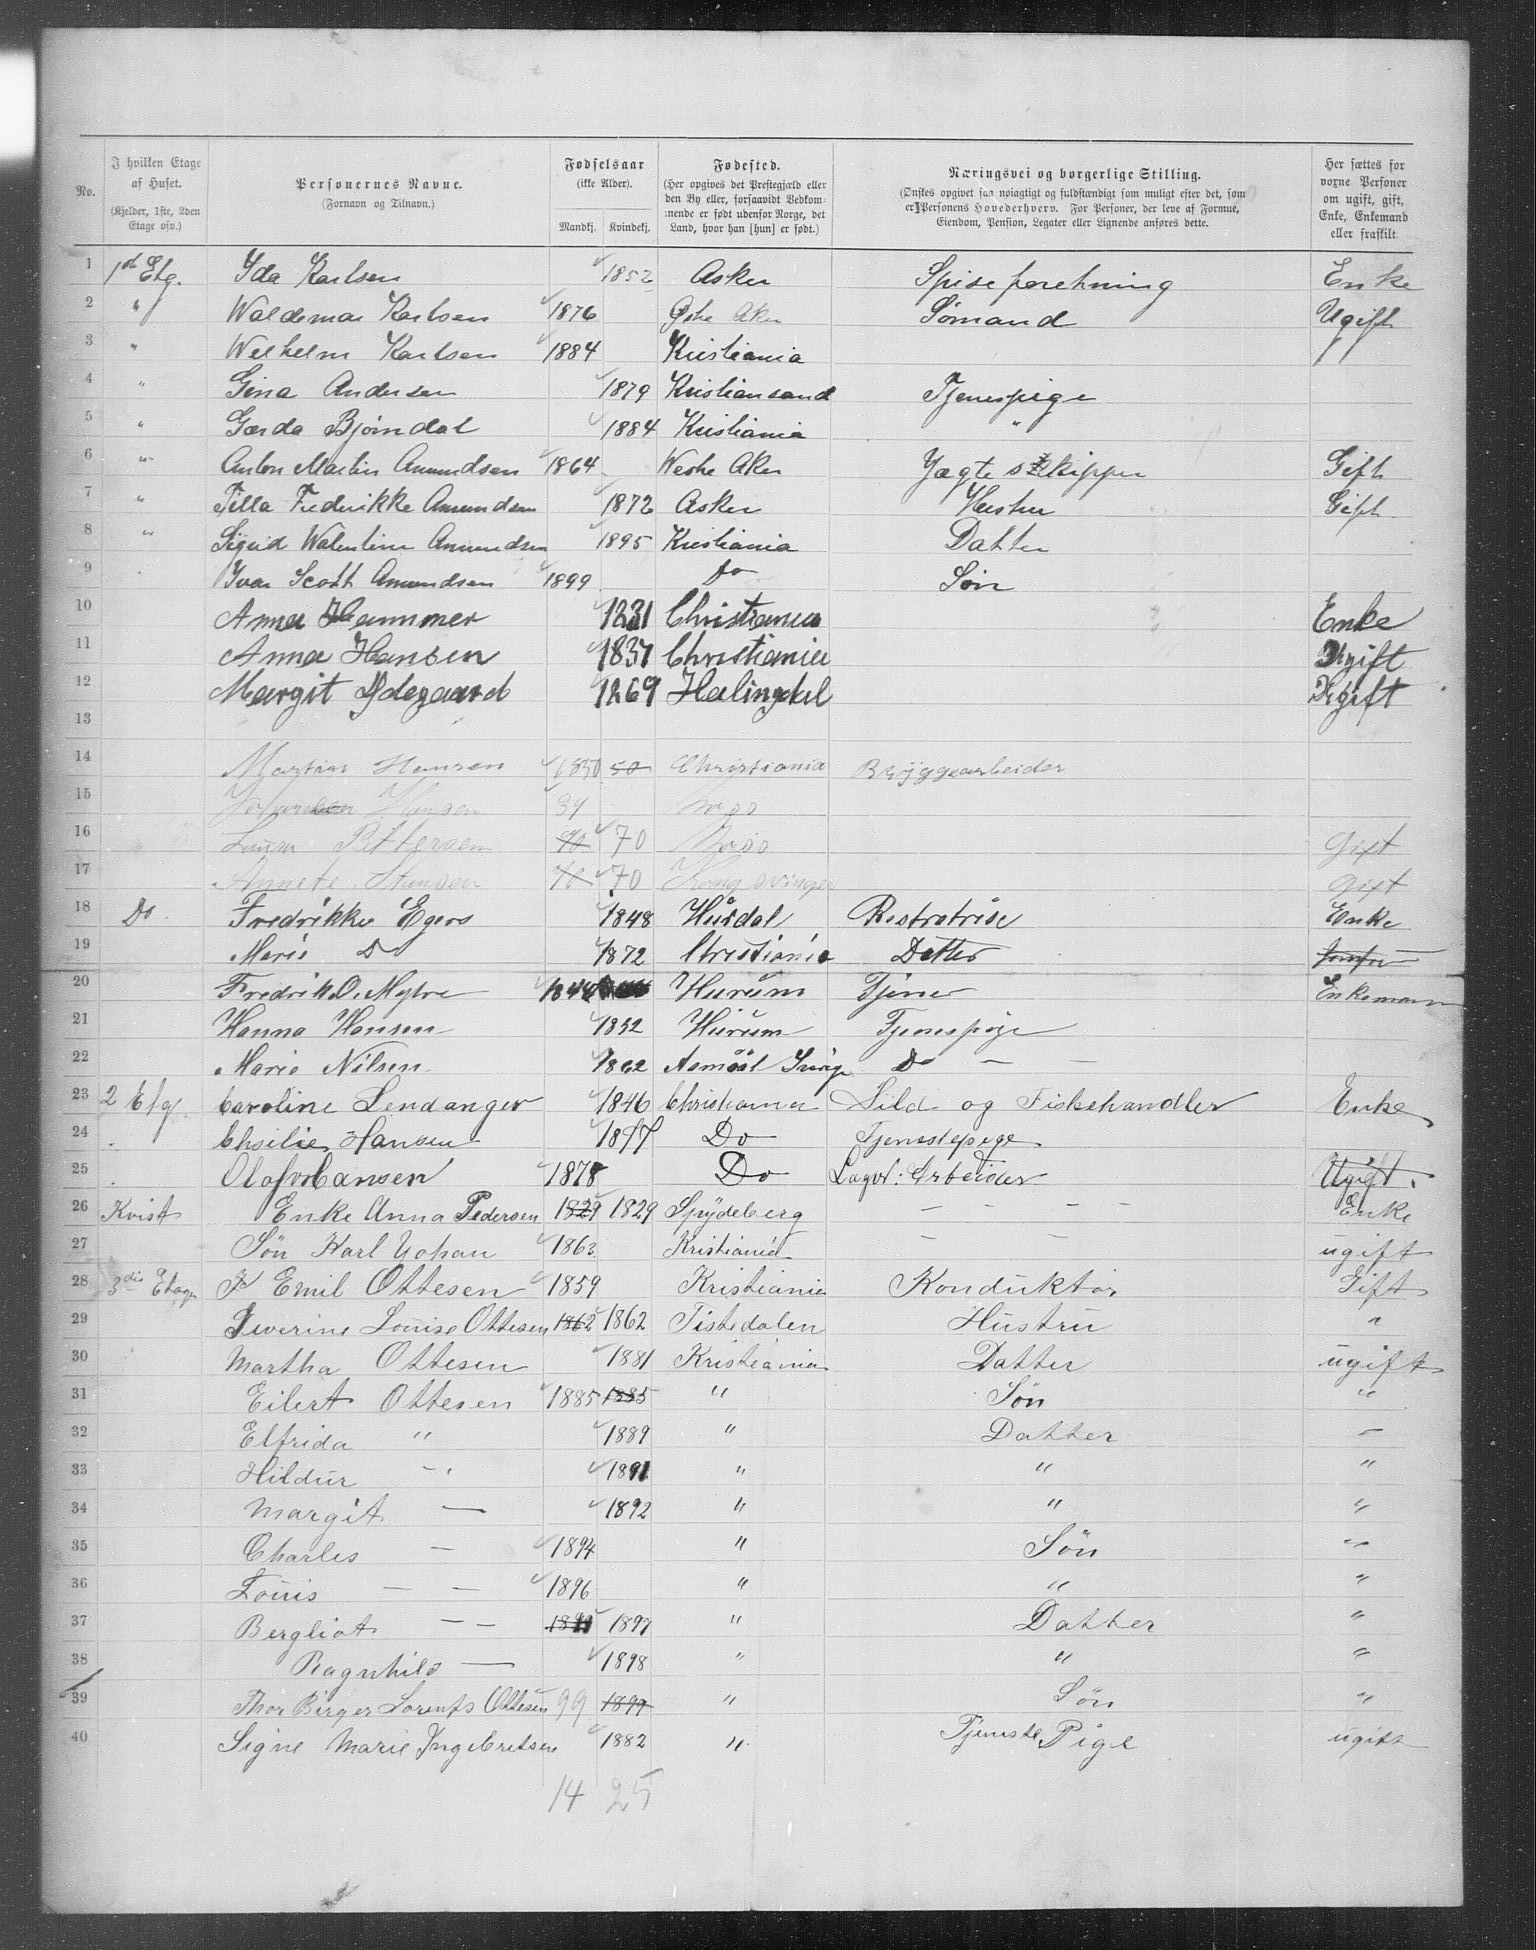 No.
I hvilken Etage af Huset. (Kjelder, 1ste, 2den Etage osv.)
Personernes Navne. (Fornavn og Tilnavn.)
Fødselsaar (ikke Alder). Mandkj. Kvindekj.
Fødested. (Her opgives det Prestegjæld eller den By eller, forsaavidt Vedkommende er født udenfor Norge, det Land, hvor han [hun] er født.)
Næringsvei og borgerlige Stilling. (Ønskes opgivet saa nøiagtigt og fuldstændigt som muligt efter det, som er Personens Hovederhverv. For Personer, der leve af Formue, Eiendom, Pension, Legater eller Lignende anføres dette.
Her sættes for voxne Personer om ugift, gift, Enke, Enkemand eller fraskilt.
1 1st Etg. Ida Karlsen 1852 Asker Spiseforretning Enke
2 " Waldemar Karlsen 1876 Østre Aker Sømand Ugift
3 " Wilhelm Karlsen 1884 Kristiania
4 " Gina Andersen 1879 Kristiansand Tjenespige
5 " Gerda Bjørndal 1884 Kristiania "
6 " Anton Martin Amundsen 1864 Westre Aker Jagteskipper Gift
7 " Tilla Fredrikke Amundsen 1872 Asker Hustru Gift
8 " Sigrid Walentine Amundsen 1895 Kristiania Datter
9 Ivar Scott Amundsen 1899 Do Søn
10 Anna Hammer 1831 Christiania Enke
11 Anna Hansen 1837 Christiania Ugift
12 Margit Ødegaard 1869 Halingdal Ugift
13
14 Martin Hansen 1850 50 Christiania Bryggearbeider
15 Hansen 89 Moss
16 Laura Pettersen 70 70 Moss Gift
17 Annete Hansen 70 70 Kongsvinger Gift
18 Do Fredrikke Egers 1848 Hurdal Restratrise Enke
19 Marie Do 1872 Christiania Datter
20 Fredrik O. Myhre 1844 Hurum Tjener Enkemann
21 Hanna Hansen 1852 Hurum Tjenespige
22 Marie Nilsen 1862 Sverige Do —
23 2 Etg. Caroline Lendanger 1846 Christiania Sild og Fiskehandler Enke
24 . Hansen 1877 Do Tjenestepige
25 . Olaf Hansen 1878 Do Lager: Arbeider Ugift.
26 Kvist Enke Anna Pedersen 1829 1829 Spydeberg — — — — Enke
27 Søn Karl Johan 1863 Kristiania — — ugift
28 3die Etage Emil Ottesen 1859 Kristiania Konduktør Gift
29 Severine Louise Ottesen 1862 1862 Tistedalen Hustru "
30 Martha Ottesen 1881 Kristiania Datter ugift
31 Eilert Ottesen 1885 1885 " Søn "
32 Elfrida " 1889 " Datter —
33 Hildur — " 1891 " " "
34 Margit — 1892 " " "
35 Charles — 1894 " Søn "
36 Louis — — 1896 " " "
37 Bergliot — — 1897 " Datter "
38 Ragnhild — 1898 " " "
39 Thor Birger Lorents Ottesen 99 1899 " Søn "
40 Signe Marie Ingebretsen 1882 " Tjeneste Pige ugift
14 25